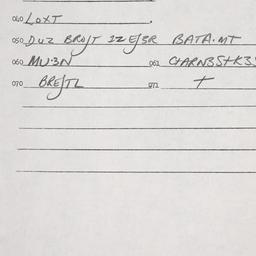 040 LOXT
050 DUZ BRO/T 12 E/3R BATA.MT
060 MU3N 061 CHARNB5+K35
070 BRE/TL 071 +